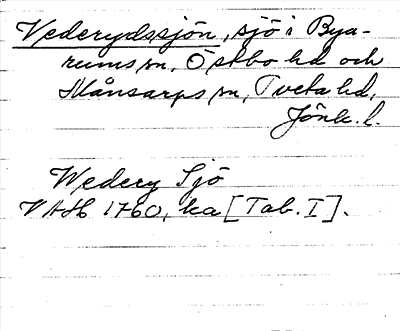 Vederydssjön, sjö i Bya-
rums sn, Östbo hd och
Månsarps sn, Tveta hd,
Jönk. l.
Wedery Sjö
VAH 1760, ka [Tab. I].